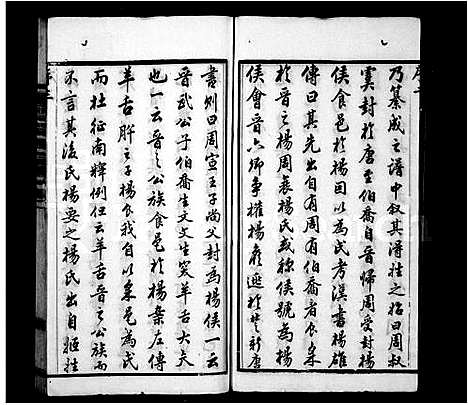 乃纂成之譜中叙其得姓之始曰周叔
虞封於唐至伯喬自晉歸周受封楊
侯食邑於楊因以為氏考漢書楊雄
傳曰其先出自周有伯喬者食采
於晉之楊周衰楊氏或称侯號為楊
侯會晉六卿争權楊侯逃於楚新唐
書則曰周宣王子尚父封為楊侯一云
晉武公子伯喬生文文生突羊舌大夫
也一云晉之公族食邑於楊案左傳
羊舌肸之子楊食我自以采邑為氏
而杜征南釋例但云羊舌晉之公族而
不言其後氏楊要之楊氏出自姬姓